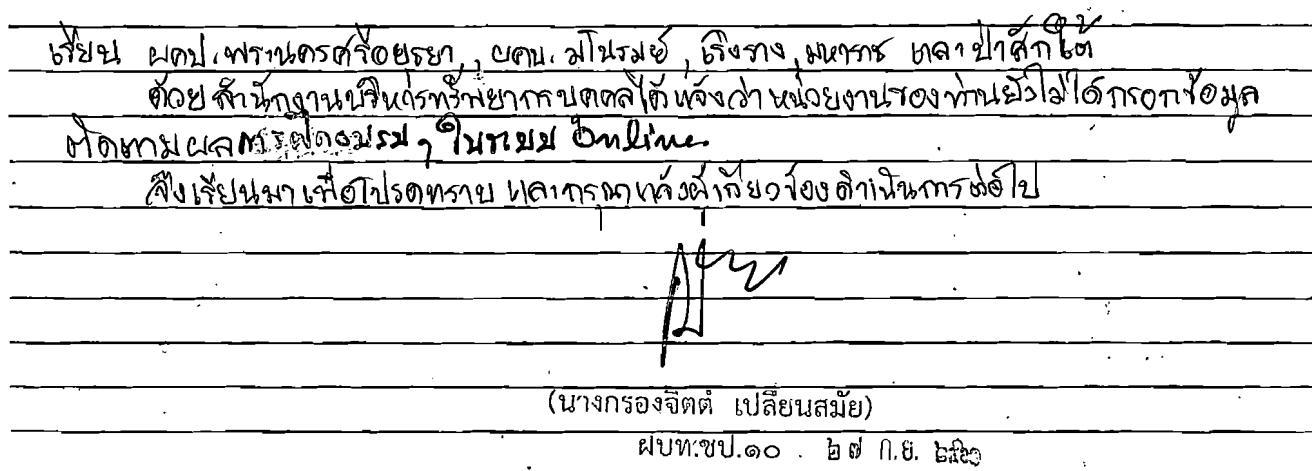 เรียน ผคป.พระนครศรีอยุธยา, ผคบ.มโนรมย์, เริงราง, มหาราช และป่าสักใต้
ด้วยสำนักงานบริหารทรัพยากรบุคคลได้แจ้งว่าหน่วยงานของท่านยังไม่ได้กรอกข้อมูล
ติดตามผลการฝึกอบรมฯ ในระบบ Online
จึงเรียนมาเพื่อโปรดทราบ และกรุณาแจ้งผู้เกี่ยวข้องดำเนินการต่อไป
(นางกรองจิตต์ เปลี่ยนสมัย)
ฝบท.ชป.๑๐ ๒๗ ก.ย.